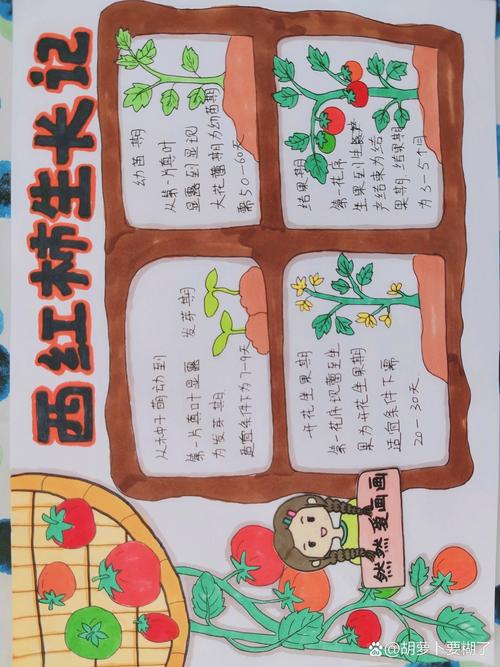 西红柿生长记
发芽期
从种子萌动到
第一片真叶显露
为发芽期.
适宜条件下为7-9天
幼苗期
从第一片真叶
显露到显现
大花蕾期为幼苗期
需50-60天
开花坐果期
第一花序现蕾至坐
果为开花坐果期
适宜条件下需
20-30天
结果期
第一花序
生果到生产
产结束为结
果期.结果期
为3-5个月
然然爱画画
胡萝卜要糊了